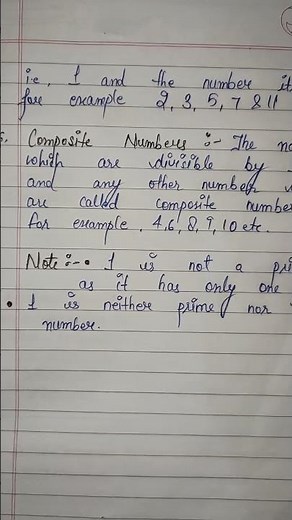 i.e, 1 and the number it
fore example 2, 3, 5, 7 & 11
Composite Numbers :- The
which are divisible by
and any other number
are called composite number
for example, 4,6, 8, 9, 10 etc.
Note :- • 1 is not a
as it has only one
• 1 is neithere prime nor
number.